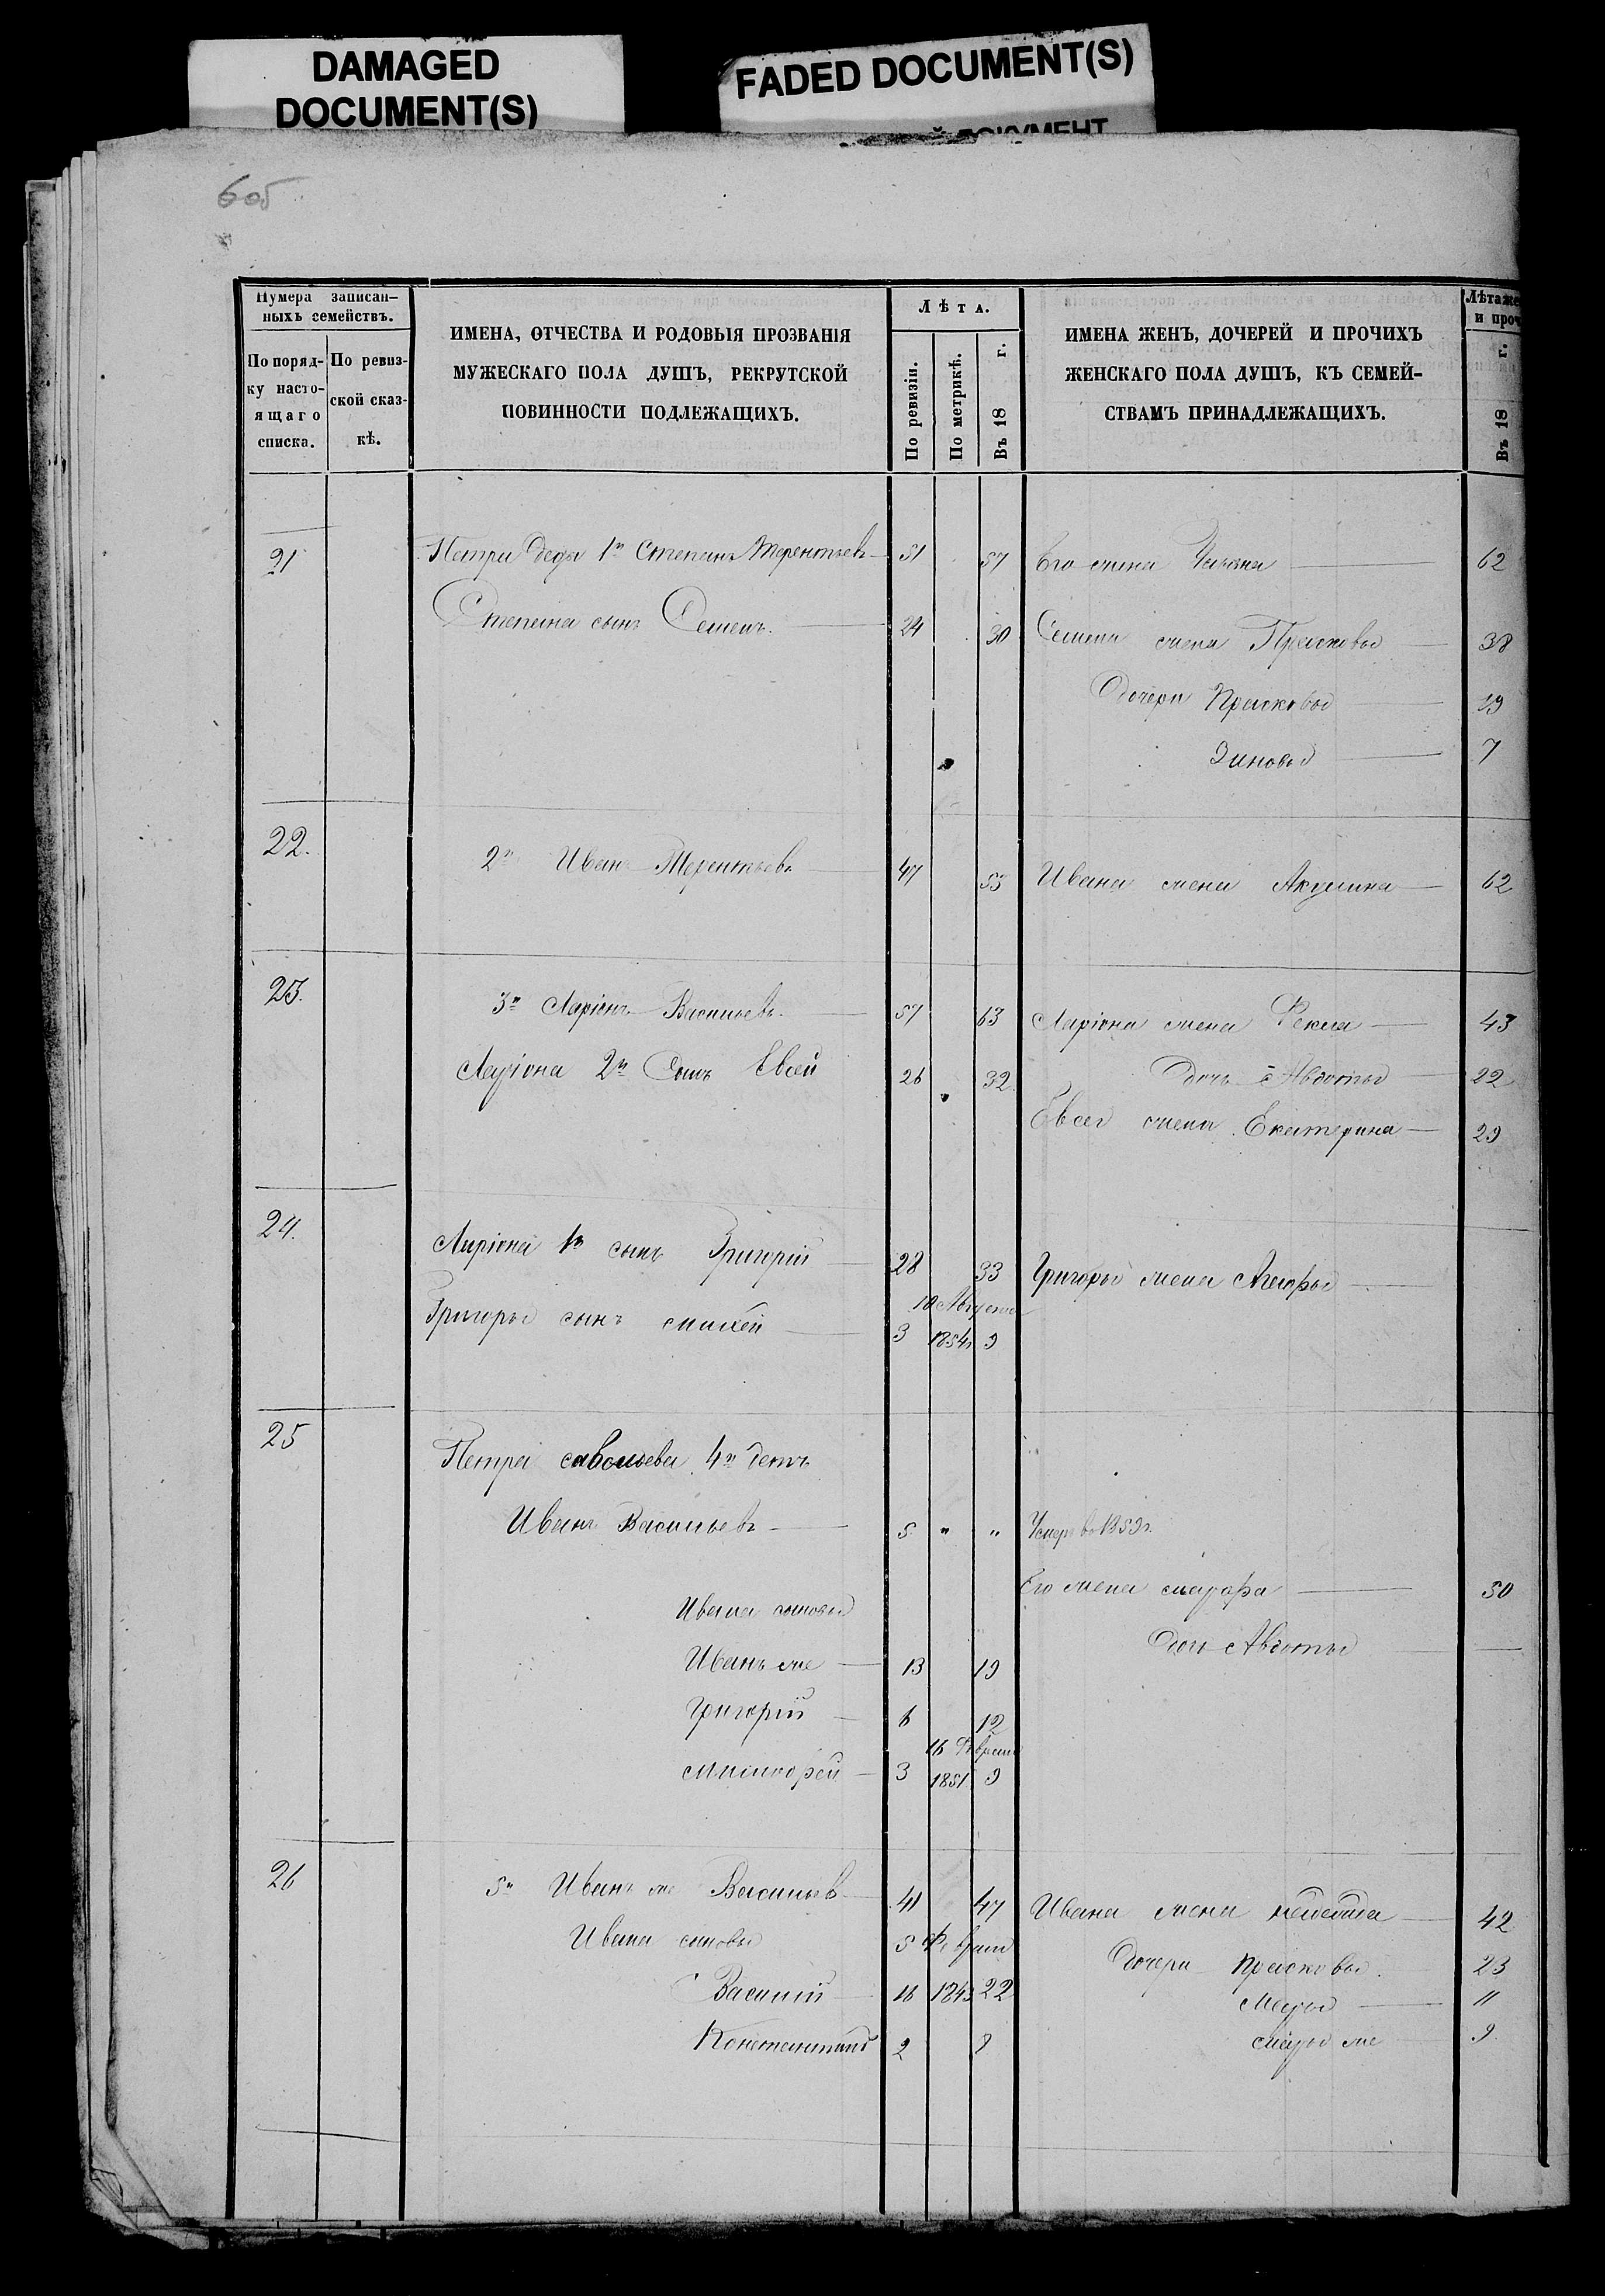 DAMAGED
DOCUMENT(S)
FADED DOCUMENT(S)
ДОКУМЕНТ
6об
Нумера записан-
ныхъ семействъ.
По поряд-
ку насто-
ящаго
списка.
По ревиз-
ской сказ-
кѣ.
ИМЕНА, ОТЧЕСТВА И РОДОВЫЯ ПРОЗВАНІЯ
МУЖЕСКАГО ПОЛА ДУШЪ, РЕКРУТСКОЙ
ПОВИННОСТИ ПОДЛЕЖАЩИХЪ.
Лѣта.
По ревизіи.
По метрикѣ.
Въ 18 г.
ИМЕНА ЖЕНЪ, ДОЧЕРЕЙ И ПРОЧИХЪ
ЖЕНСКАГО ПОЛА ДУШЪ, КЪ СЕМЕЙ-
СТВАМЪ ПРИНАДЛЕЖАЩИХЪ.
Лѣта же
и проч
Въ 18 г.
21 Петра 1й Степанъ Терентьевъ 51 57 Его жена 62
Степана сынъ Семенъ. 24 30 Семена жена Прасковья 38
Дочери Прасковья 19
Зиновья 7
22. 2й Иванъ Терентьевъ 47 53 Ивана жена Акулина 62
23. 3й Ларіонъ Васильевъ 57 63 Ларіона жена Фекла 43
Ларіона 2й Сынъ Евсей 26 32 Дочь Авдотья 22
Евсея жена Екатерина 29
24. Ларіона 1й сынъ Григорій 28 33 Григорья жена Агафья
10 Августа
Григорья сынъ Михей 3 1854г 9
25 Петра 4й
Иванъ Васильевъ 5 " " Умеръ въ 1859г.
Его жена Марфа 50
Ивана сыновья
Дочь Авдотья
Иванъ же 13 19
Григорій 6 12
16 Февраля
3 1851 9
26 5й Иванъ же Васильевъ 41 47 Ивана жена 42
Ивана сыновья 5 Февраля Дочери Прасковья 23
Василій 16 1843 22 Марья 11
Константинъ 2 8 Марья же 9